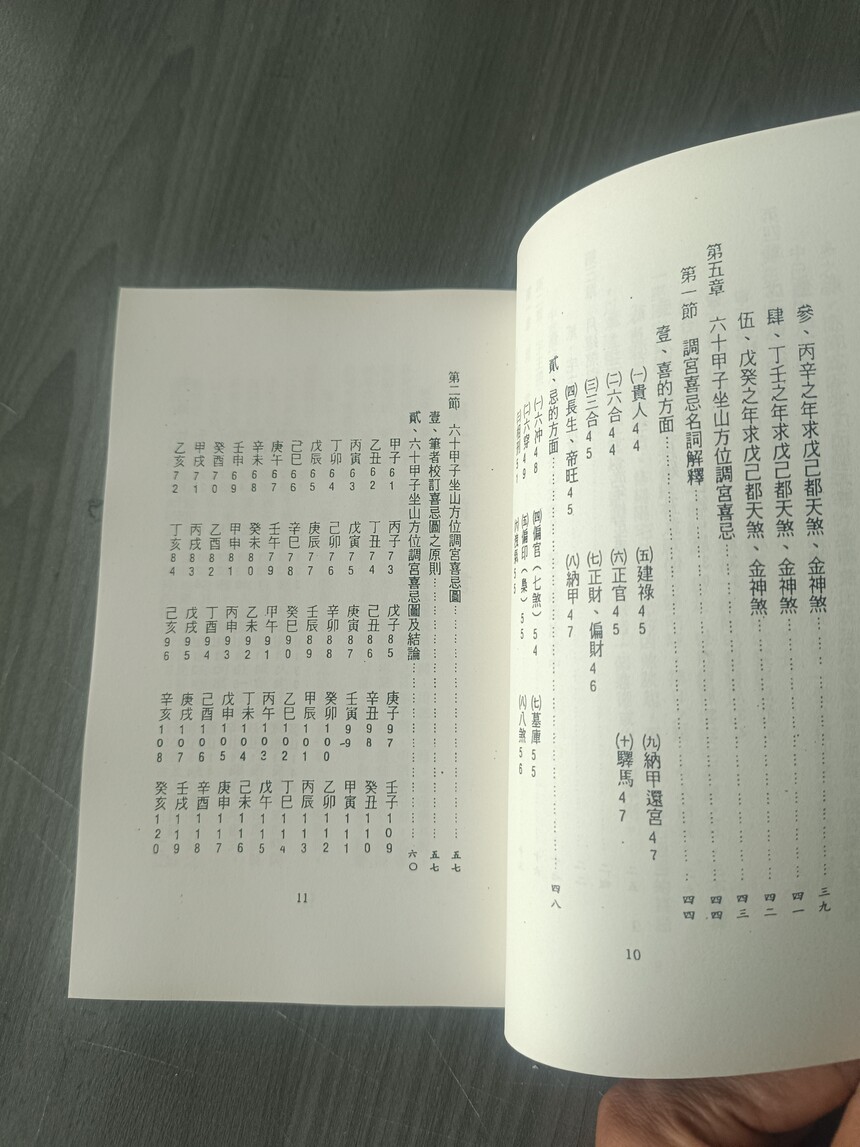 參、丙辛之年求戊己都天煞、金神煞……三九
肆、丁壬之年求戊己都天煞、金神煞……四一
伍、戊癸之年求戊己都天煞、金神煞……四二
第五章 六十甲子坐山方位調宮喜忌……四三
第一節 調宮喜忌名詞解釋……四四
壹、喜的方面……四四
㈠貴人44 ㈤建祿45 ㈨納甲還宮47
㈡六合44 ㈥正官45 ㈩驛馬47
㈢三合45 ㈦正財、偏財46
㈣長生、帝旺45 ㈧納甲47
貳、忌的方面……四八
㈠六沖48 ㈣偏官(七煞)54 ㈦墓庫55
㈡六穿49 ㈤偏印(梟)55 ㈧八煞56
10
第二節 六十甲子坐山方位調宮喜忌圖……五七
壹、筆者校訂喜忌圖之原則……五七
貳、六十甲子坐山方位調宮喜忌圖及結論……六〇
甲子61 丙子73 戊子85 庚子97 壬子109
乙丑62 丁丑74 己丑86 辛丑98 癸丑110
丙寅63 戊寅75 庚寅87 壬寅99 甲寅111
丁卯64 己卯76 辛卯88 癸卯100 乙卯112
戊辰65 庚辰77 壬辰89 甲辰101 丙辰113
己巳66 辛巳78 癸巳90 乙巳102 丁巳114
庚午67 壬午79 甲午91 丙午103 戊午115
辛未68 癸未80 乙未92 丁未104 己未116
壬申69 甲申81 丙申93 戊申105 庚申117
癸酉70 乙酉82 丁酉94 己酉106 辛酉118
甲戌71 丙戌83 戊戌95 庚戌107 壬戌119
乙亥72 丁亥84 己亥96 辛亥108 癸亥120
11